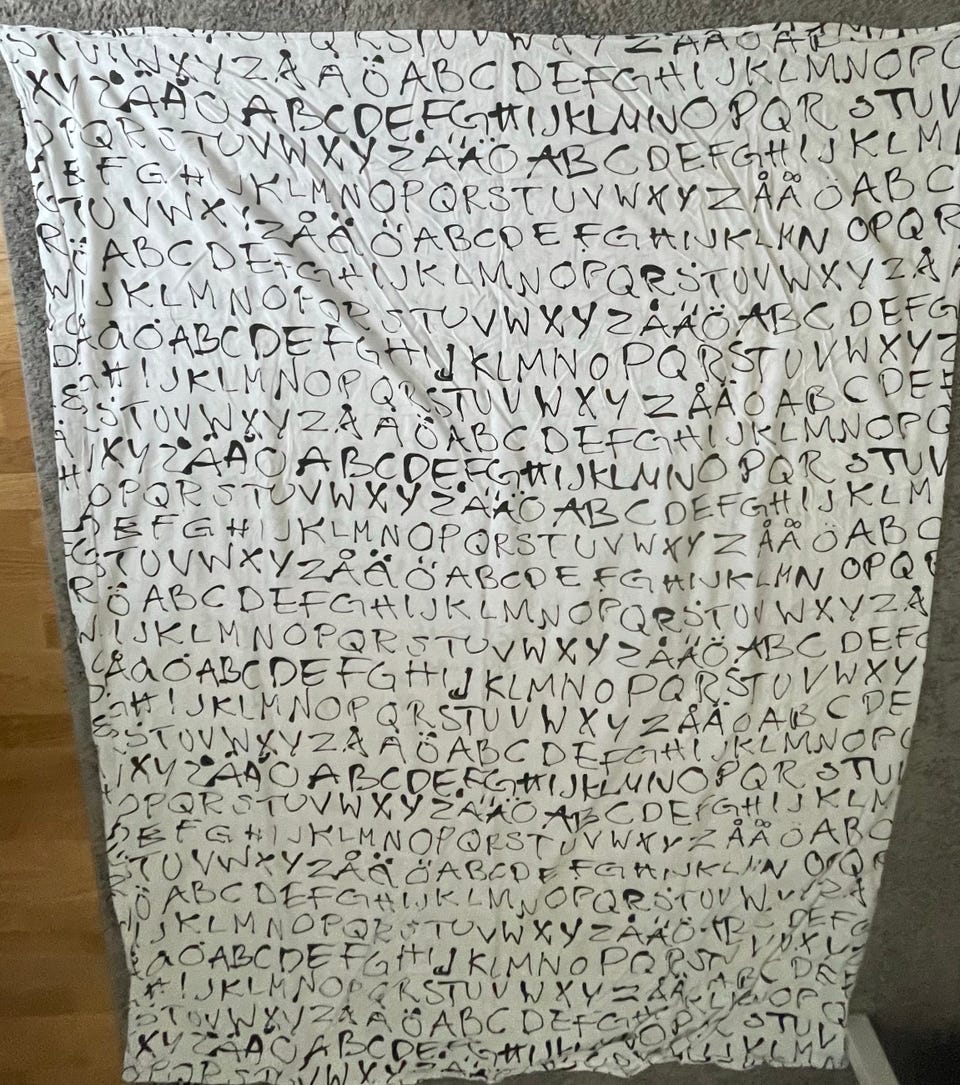 Q R S T U V W X Y Z Å Ä Ö A B
S T U V W X Y Z Å Ä Ö A B C D E F G H I J K L M N O P Q
X Y Z Å Ä Ö A B C D E F G H I J K L M N O P Q R S T U V
O P Q R S T U V W X Y Z Å Ä Ö A B C D E F G H I J K L M
E F G H I J K L M N O P Q R S T U V W X Y Z Å Ä Ö A B C
T U V W X Y Z Å Ä Ö A B C D E F G H I J K L M N O P Q R
Ö A B C D E F G H I J K L M N O P Q R S T U V W X Y Z Å
I J K L M N O P Q R S T U V W X Y Z Å Ä Ö A B C D E F G
Å Ä Ö A B C D E F G H I J K L M N O P Q R S T U V W X Y Z
H I J K L M N O P Q R S T U V W X Y Z Å Ä Ö A B C D E F
S T U V W X Y Z Å Ä Ö A B C D E F G H I J K L M N O P Q
X Y Z Å Ä Ö A B C D E F G H I J K L M N O P Q R S T U V
O P Q R S T U V W X Y Z Å Ä Ö A B C D E F G H I J K L M
E F G H I J K L M N O P Q R S T U V W X Y Z Å Ä Ö A B C
T U V W X Y Z Å Ä Ö A B C D E F G H I J K L M N O P Q R
Ö A B C D E F G H I J K L M N O P Q R S T U V W X Y Z Å
I J K L M N O P Q R S T U V W X Y Z Å Ä Ö A B C D E F G
Å Ä Ö A B C D E F G H I J K L M N O P Q R S T U V W X Y
H I J K L M N O P Q R S T U V W X Y Z Å Ä Ö A B C D E
S T U V W X Y Z Å Ä Ö A B C D E F G H I J K L M N O P Q
X Y Z Å Ä Ö A B C D E F G H I J K L M N O P Q R S T U
O P Q R S T U V W X Y Z Å Ä Ö A B C D E F G H I J K L M
E F G H I J K L M N O P Q R S T U V W X Y Z Å Ä Ö A B C
T U V W X Y Z Å Ä Ö A B C D E F G H I J K L M N O P Q R
Ö A B C D E F G H I J K L M N O P Q R S T U V W X Y Z Å
I J K L M N O P Q R S T U V W X Y Z Å Ä Ö A B C D E F G
Ä Ö A B C D E F G H I J K L M N O P Q R S T U V W X Y
H I J K L M N O P Q R S T U V W X Y Z Å Ä Ö A B C D E
S T U V W X Y Z Å Ä Ö A B C D E F G H I J K L M N O P
X Y Z Å Ä Ö A B C D E F G H I J K L M N O P Q R S T U V
O P Q R S T U V W X Y Z Å Ä Ö A B C D E F G H I J K L M